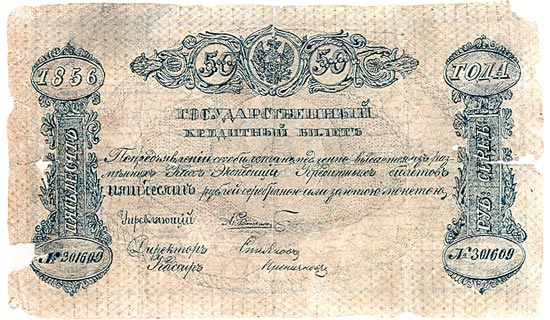 50 50
1856 ГОДА
ГОСУДАРСТВЕННЫЙ
КРЕДИТНЫЙ БИЛЕТЪ
По предъявленіи сего билета немедленно выдается изъ раз-
мѣнныхъ Кассъ Экспедиціи Кредитныхъ билетовъ
ПЯТЬДЕСЯТЪ рублей серебряною или золотою монетою
ПЯТЬДЕСЯТЪ
РУБ: СЕРЕБ:
Управляющій
Директоръ
Кассиръ
№ 301609 № 301609